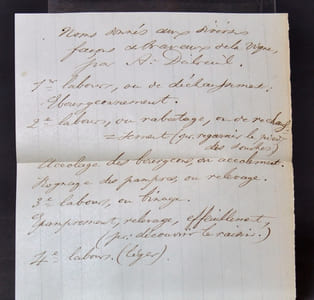 Noms donnés aux diverses
façons de travaux de la Vigne,
par A. Dubreuil.
1er labour, ou de déchaussement.
Ebourgeonnement.
2e labour, ou rabattage, ou de rechaus
=sement (pr. regarnir le pied
des souches)
Accolage des bourgeons, ou accolement.
Rognage des pampres, ou relevage.
3e labour, ou binage.
Epamprement, relevage, effeuillement,
(pr. découvrir le raisin.)
4e labour. (léger)